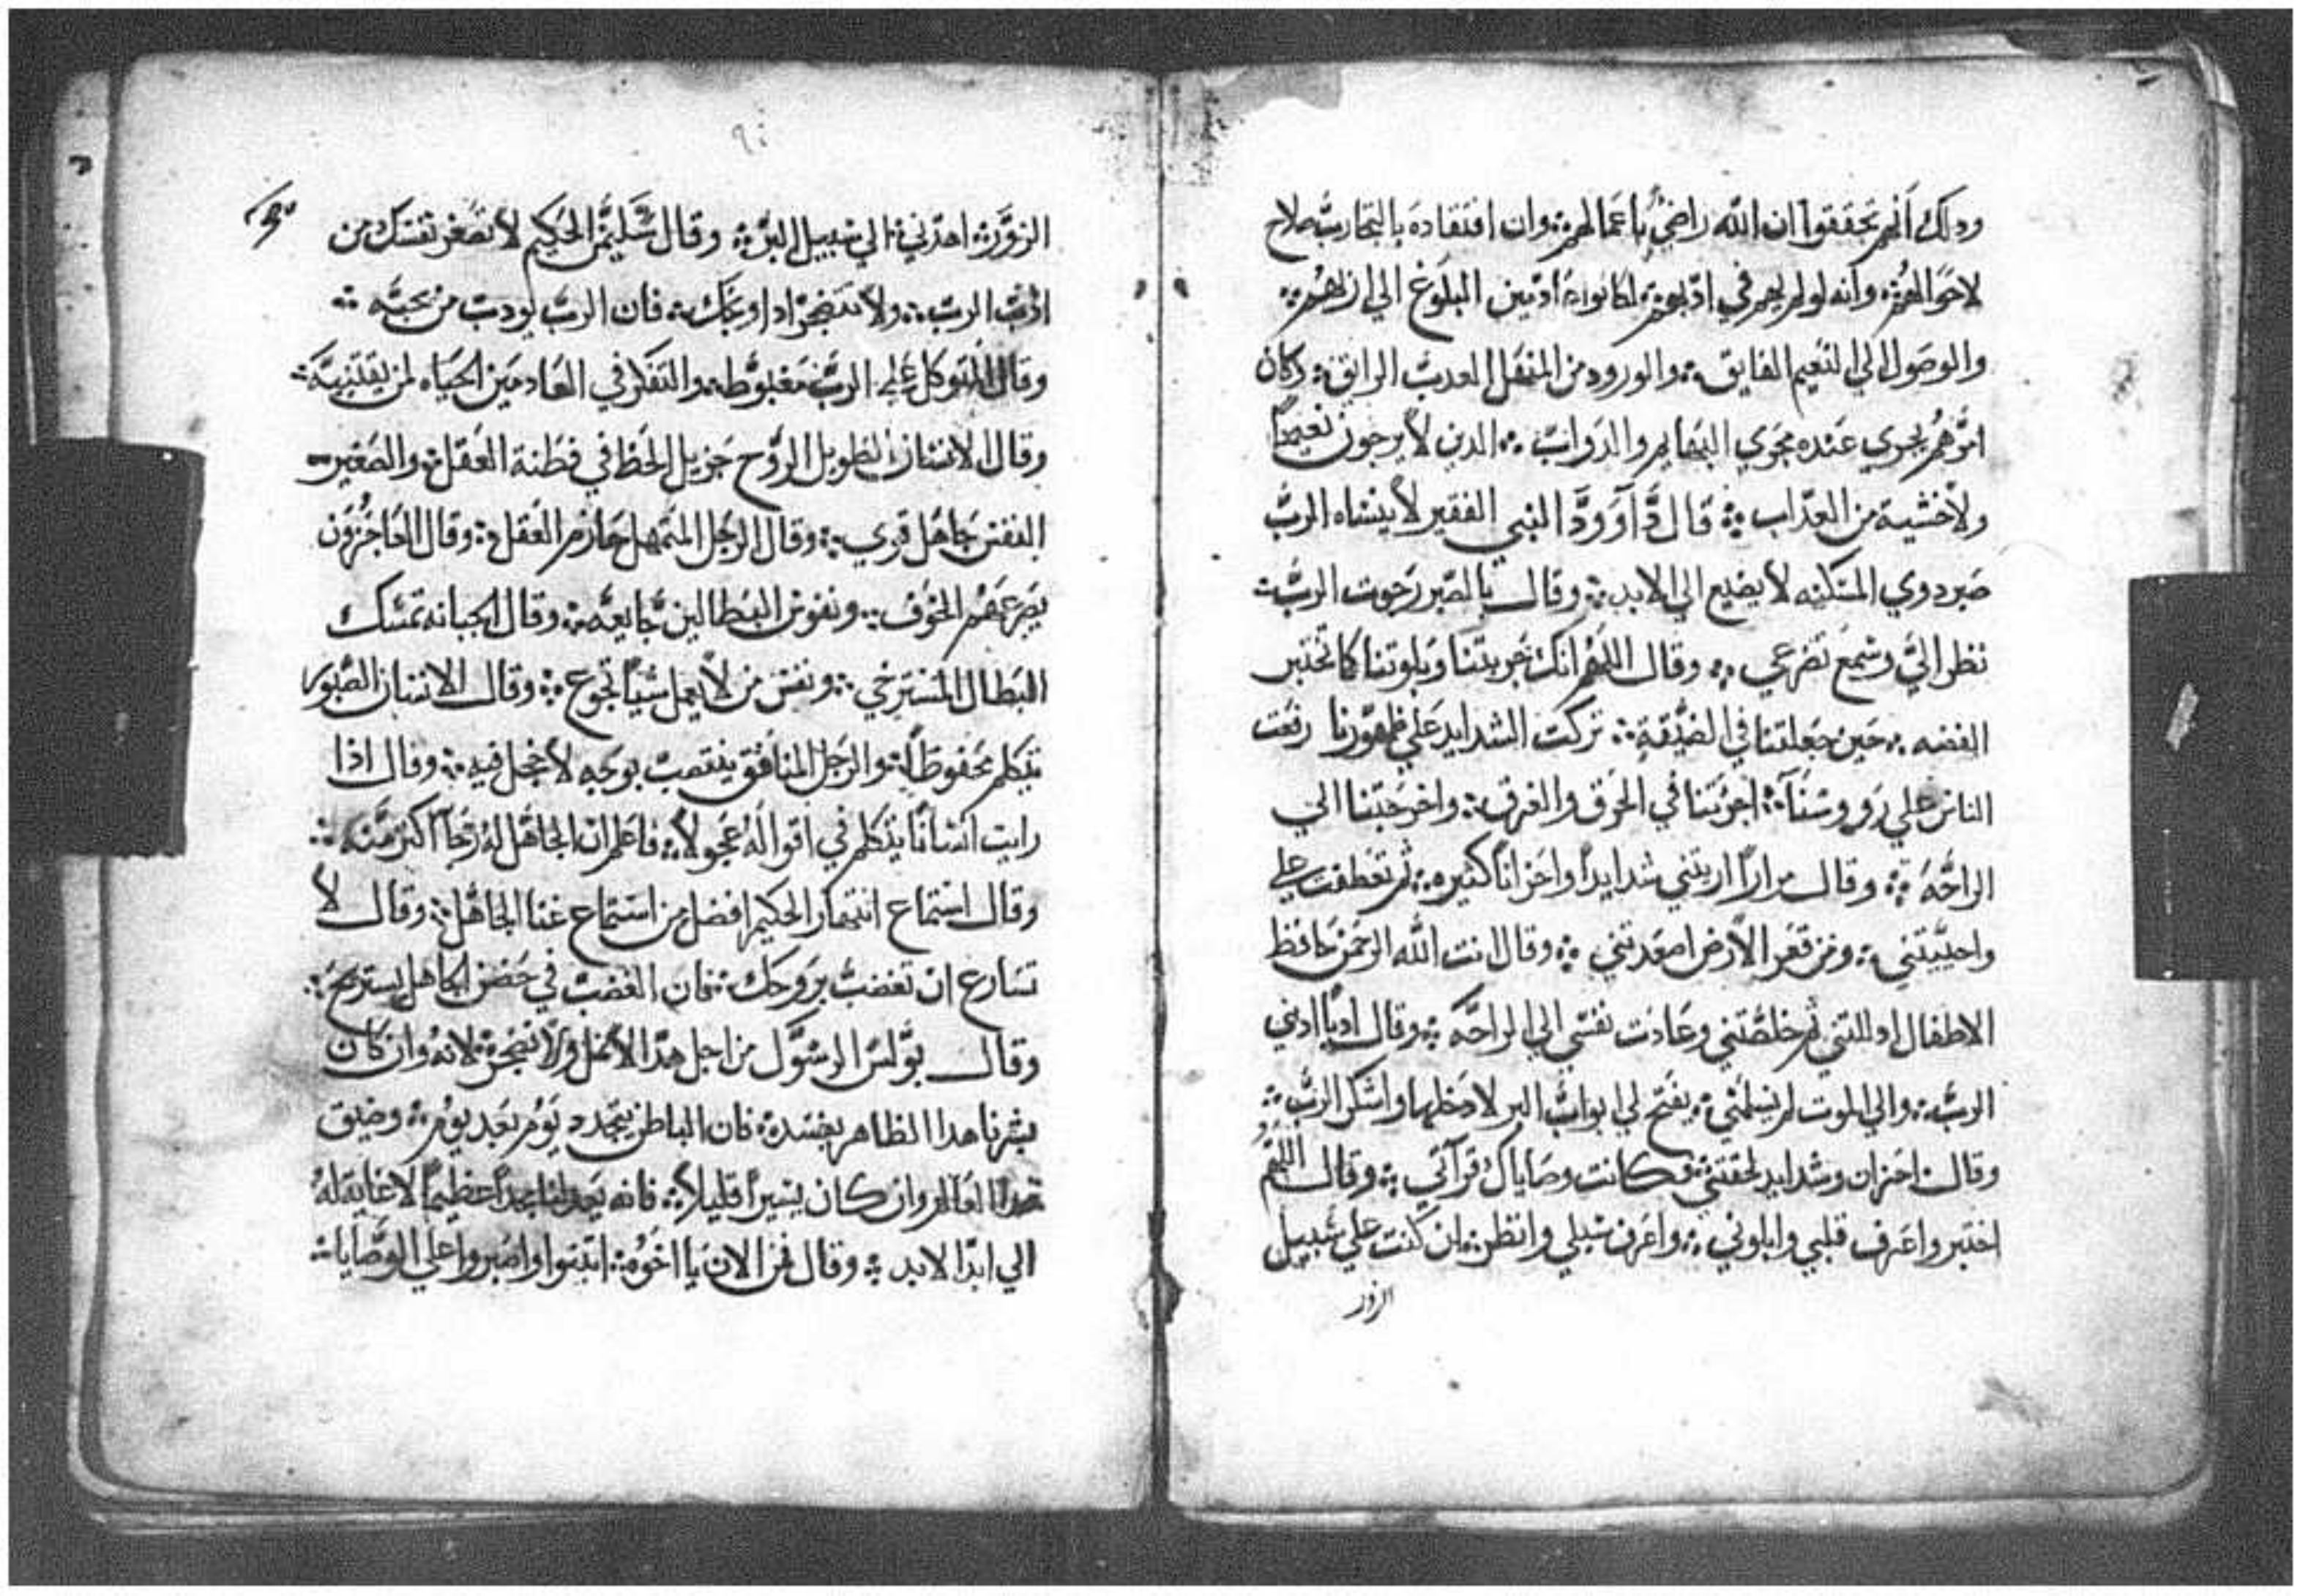 ودلك انهم تحققوا ان الله راضي باعمالهم وان افتقاده بالتجارب صلاح
لاحوالهم وانه لولم يهم في ادبهم لكانوا ادنين البلوغ الي
والوصول الي النعيم الفايق والورود من المنهل العدب الرايق وكان
امرهم يجري عنده مجري البهايم والدواب الدين لا يرجون نعيما
ولا خشية من العداب قال داوود النبي الفقير لا ينساه الرب
صبر دوي المسكنه لا يضيع الي الابد وقال بالصبر رجوت الرب
نظر الي وسمع تضرعي وقال اللهم انك جربتنا وبلوتنا كما تختبر
الفضه حين جعلتنا في الضيقة تركت الشدايد علي ظهورنا رفعت
الناس علي رووسنا اجزتنا في الحرق والغرق واخرجتنا الي
الراحه وقال مرارا اريتني شدايدا واحزانا كثيره ثم تعطفت علي
واحييتني ومن قعر الارض اصعدتني وقال انت الله الرحمن حافظ
الاطفال ادللتني ثم خلصتني وعادت نفسي الي الراحه وقال ادبا ادبني
الرب والي الموت لم يسلمني يفتح لي ابواب البر لادخلها واشكر الرب
وقال احزان وشدايد لحقتني فكانت وصاياك قرآتي وقال اللهم
اختبر واعرف قلبي وابلوني واعرف سبلي وانظر ان كنت علي سبيل
الزور
٩٠
الزور اهدني الي سبيل البر وقال سليمن الحكيم لا تصغر نفسك من
ادب الرب ولا تتضجر ادا وبخك فان الرب يودب من يحبه
وقال المتوكل علي الرب مغبوطه والتفكر في العادمين الحياه لمن يقتنيه
وقال الانسان الطويل الروح جزيل الحظ في فطنة العقل والصغير
النفس جاهل قوي وقال الرجل المتمهل حازم العقل وقال العاجزون
يصرعهم الخوف ونفوس البطالين جايعه وقال الجبانه تمسك
البطال المسترخي ونفس من لا يعمل شيا تجوع وقال الانسان الصبور
يتكلم محفوظا والرجل المنافق ينتصب بوجه لا خجل فيه وقال اذا
رايت انسانا يتكلم في اقواله عجولا فاعلم ان الجاهل له رجا اكثر منه
وقال استماع انتهار الحكيم افضل من استماع غنا الجاهل وقال لا
تسارع ان تغضب بروحك فان الغضب في حضن الجاهل يستريح
وقال بولس الرسول من اجل هدا لا نمل ولا نضجر لانه وان كان
بشرنا هدا الظاهر يفسد فان الباطن يتجدد يوم بعد يوم وضيق
هدا العالم وان كان يسيرا قليلا فانه يعد لنا مجدا عظيما لا غاية له
الي ابد الابد وقال فمن الان يا اخوه اتبتوا واصبروا علي الوصايا